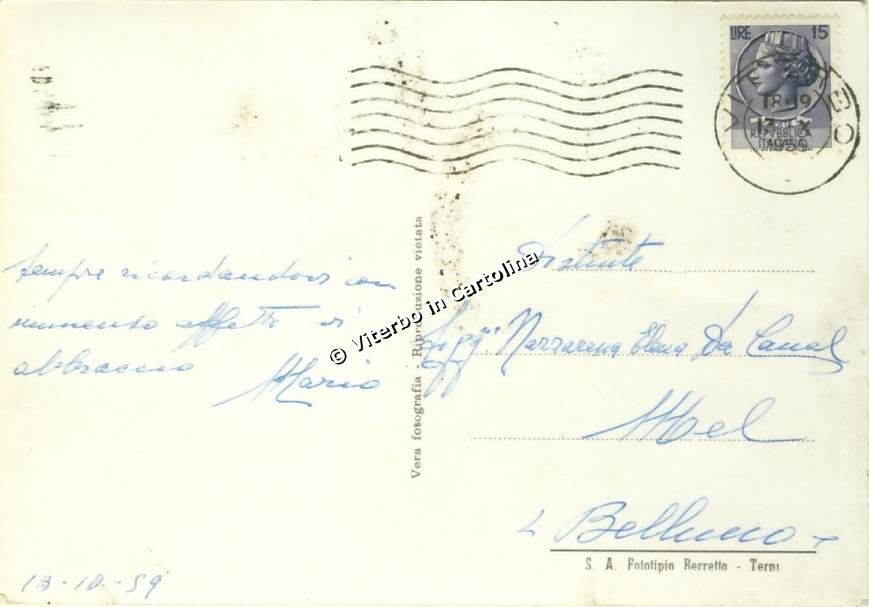 LIRE 15
VITERBO
18-19
13 X
1959
REPUBBLICA
ITALIANA
sempre ricordandovi con
immenso affetto vi
abbraccio Mario
13-10-59
Vera fotografia - Riproduzione vietata
© Viterbo in Cartolina
Distinte
Nazzarena Elena Da Canal
Mel
Belluno
S. A. Fototipia Berretta - Terni